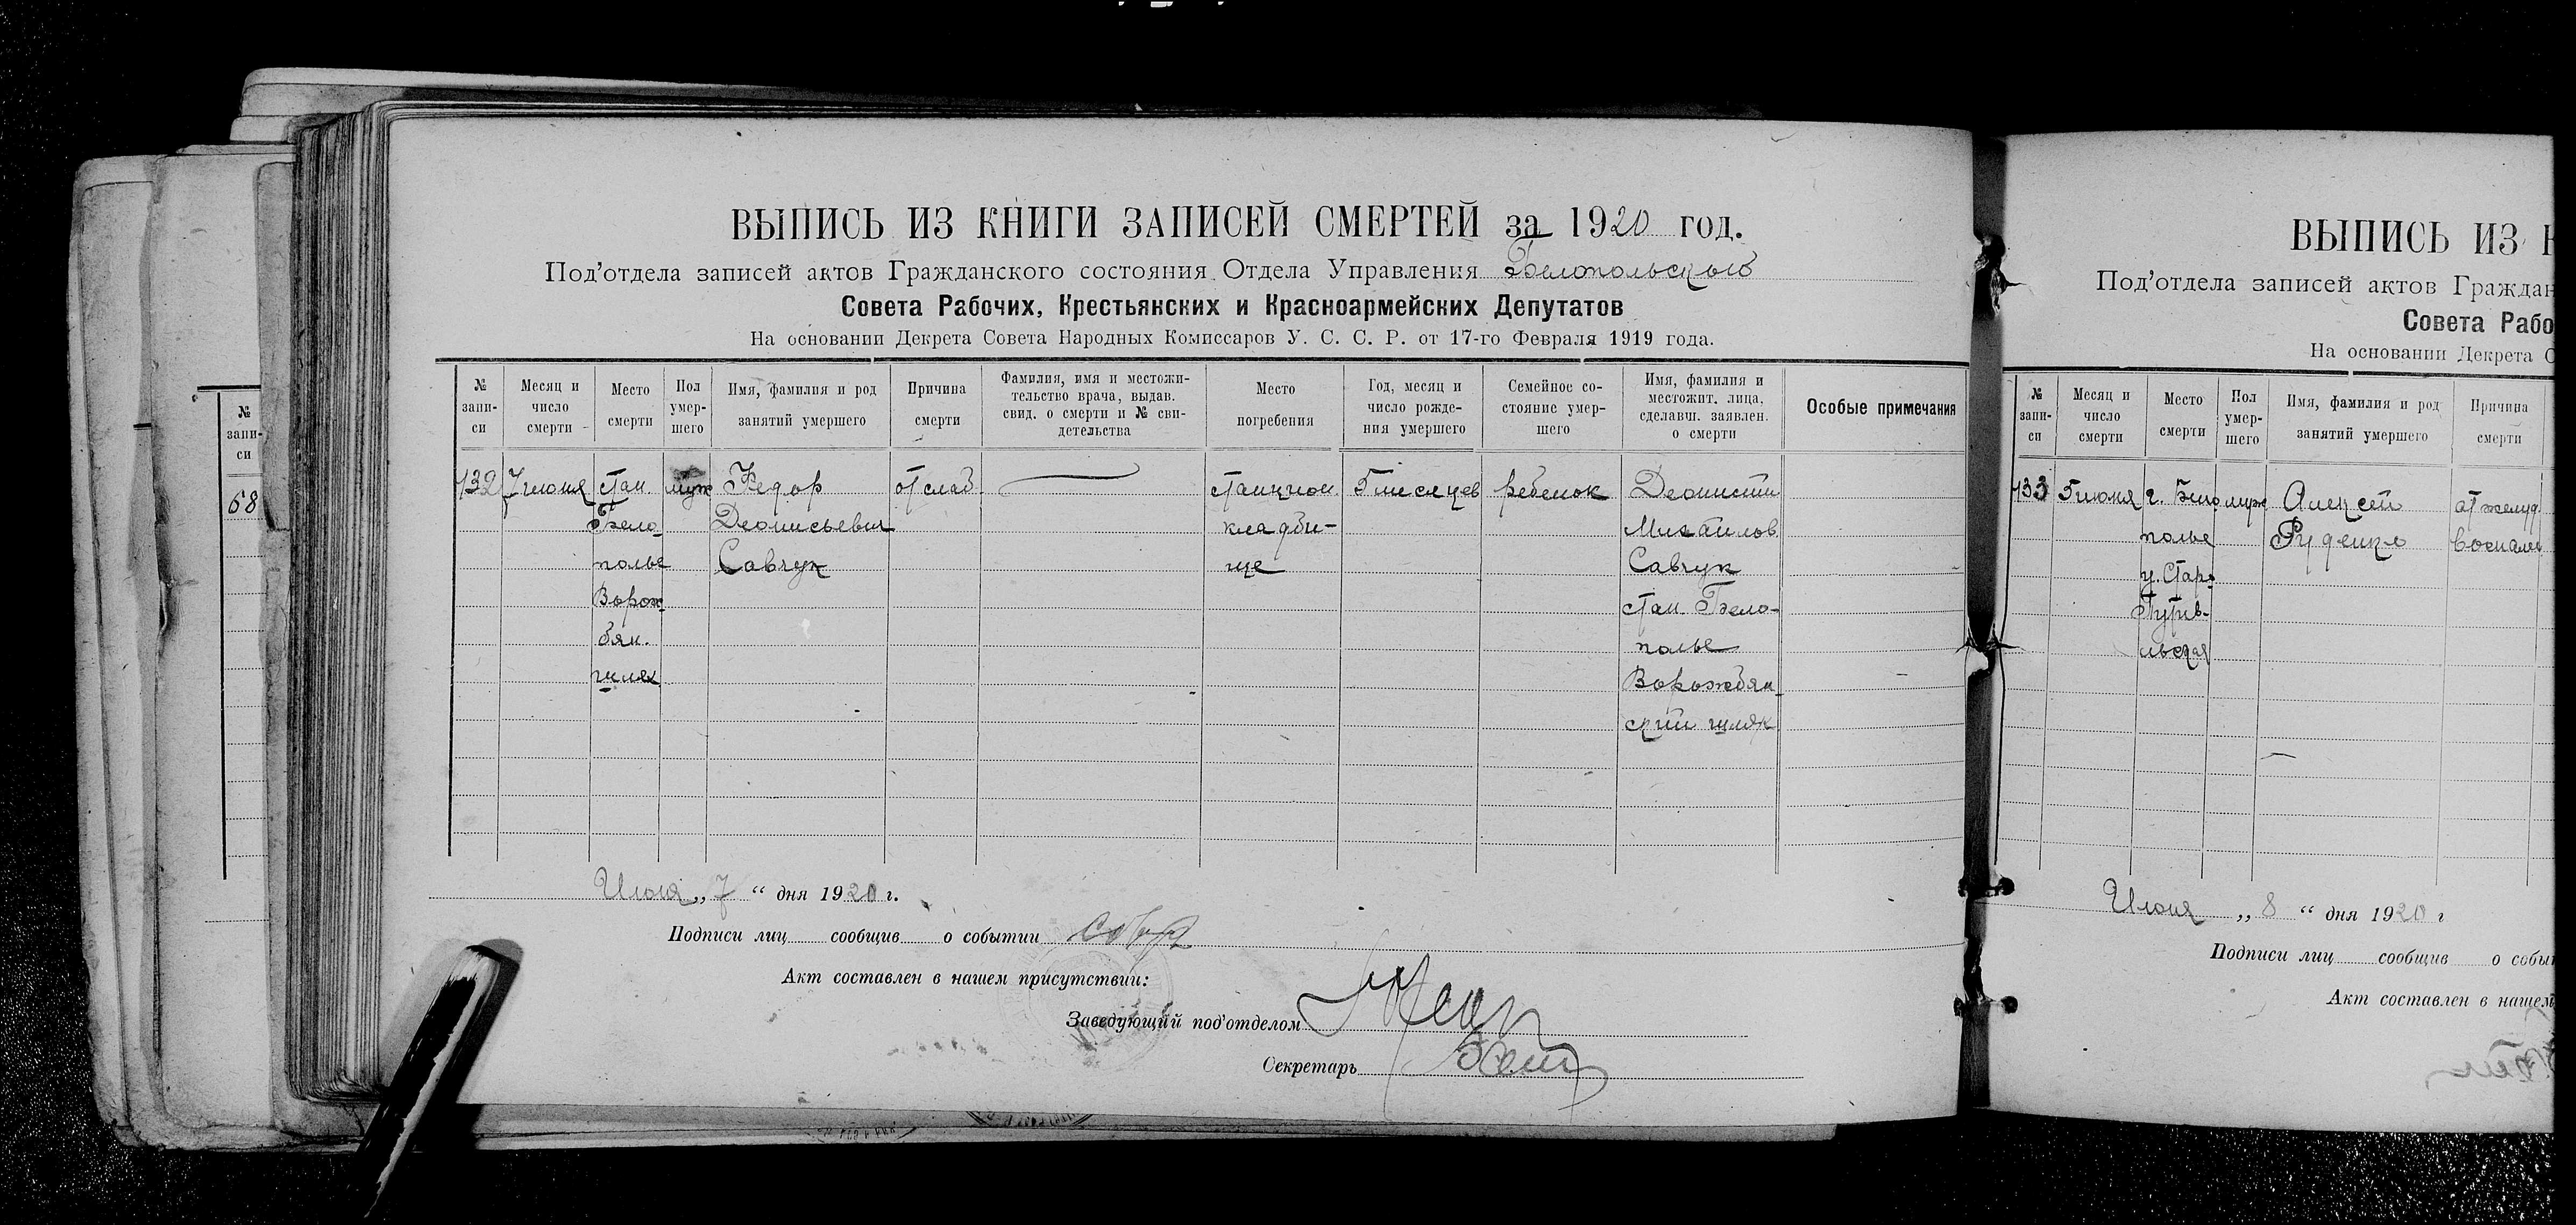 №
запи-
си
68
ВЫПИСЬ ИЗ КНИГИ ЗАПИСЕЙ СМЕРТЕЙ за 1920 год.
Под'отдела записей актов Гражданского состояния Отдела Управления Белопольского
Совета Рабочих, Крестьянских и Красноармейских Депутатов
На основании Декрета Совета Народных Комиссаров У. С. С. Р. от 17-го Февраля 1919 года.
№
запи-
си
Месяц и
число
смерти
Место
смерти
Пол
умер-
шего
Имя, фамилия и род
занятий умершего
Причина
смерти
Фамилия, имя и местожи-
тельство врача, выдав.
свид. о смерти и № сви-
детельства
Место
погребения
Год, месяц и
число рожде-
ния умершего
Семейное со-
стояние умер-
шего
Имя, фамилия и
местожит. лица,
сделавш. заявлен.
о смерти
Особые примечания
132
7 июня
стан.
Бело
полье
Ворож-
бян.
шлях
муж
Федор
Деонисьевич
Савчук
от слаб.
станцион
кладби-
ще
5 месяцев
ребенок
Деонисий
Михайлов
Савчук
стан. Бело-
полье
Ворожбян-
ский шлях
Июня „ 7 “ дня 1920 г.
Подписи лиц сообщив о событии
Акт составлен в нашем присутствии:
Заведующий под'отделом
Секретарь
ВЫПИСЬ ИЗ
Под'отдела записей актов Граждан
Совета Рабо
На основании Декрета С
№
запи-
си
Месяц и
число
смерти
Место
смерти
Пол
умер-
шего
Имя, фамилия и род
занятий умершего
Причина
смерти
133
5 июня
г. Бело
полье
у. Старо
Путив-
льская
муж
Алексей
Руденко
от желуд.
воспален
Июня „ 8 “ дня 1920 г
Подписи лиц сообщив о собы
Акт составлен в нашем